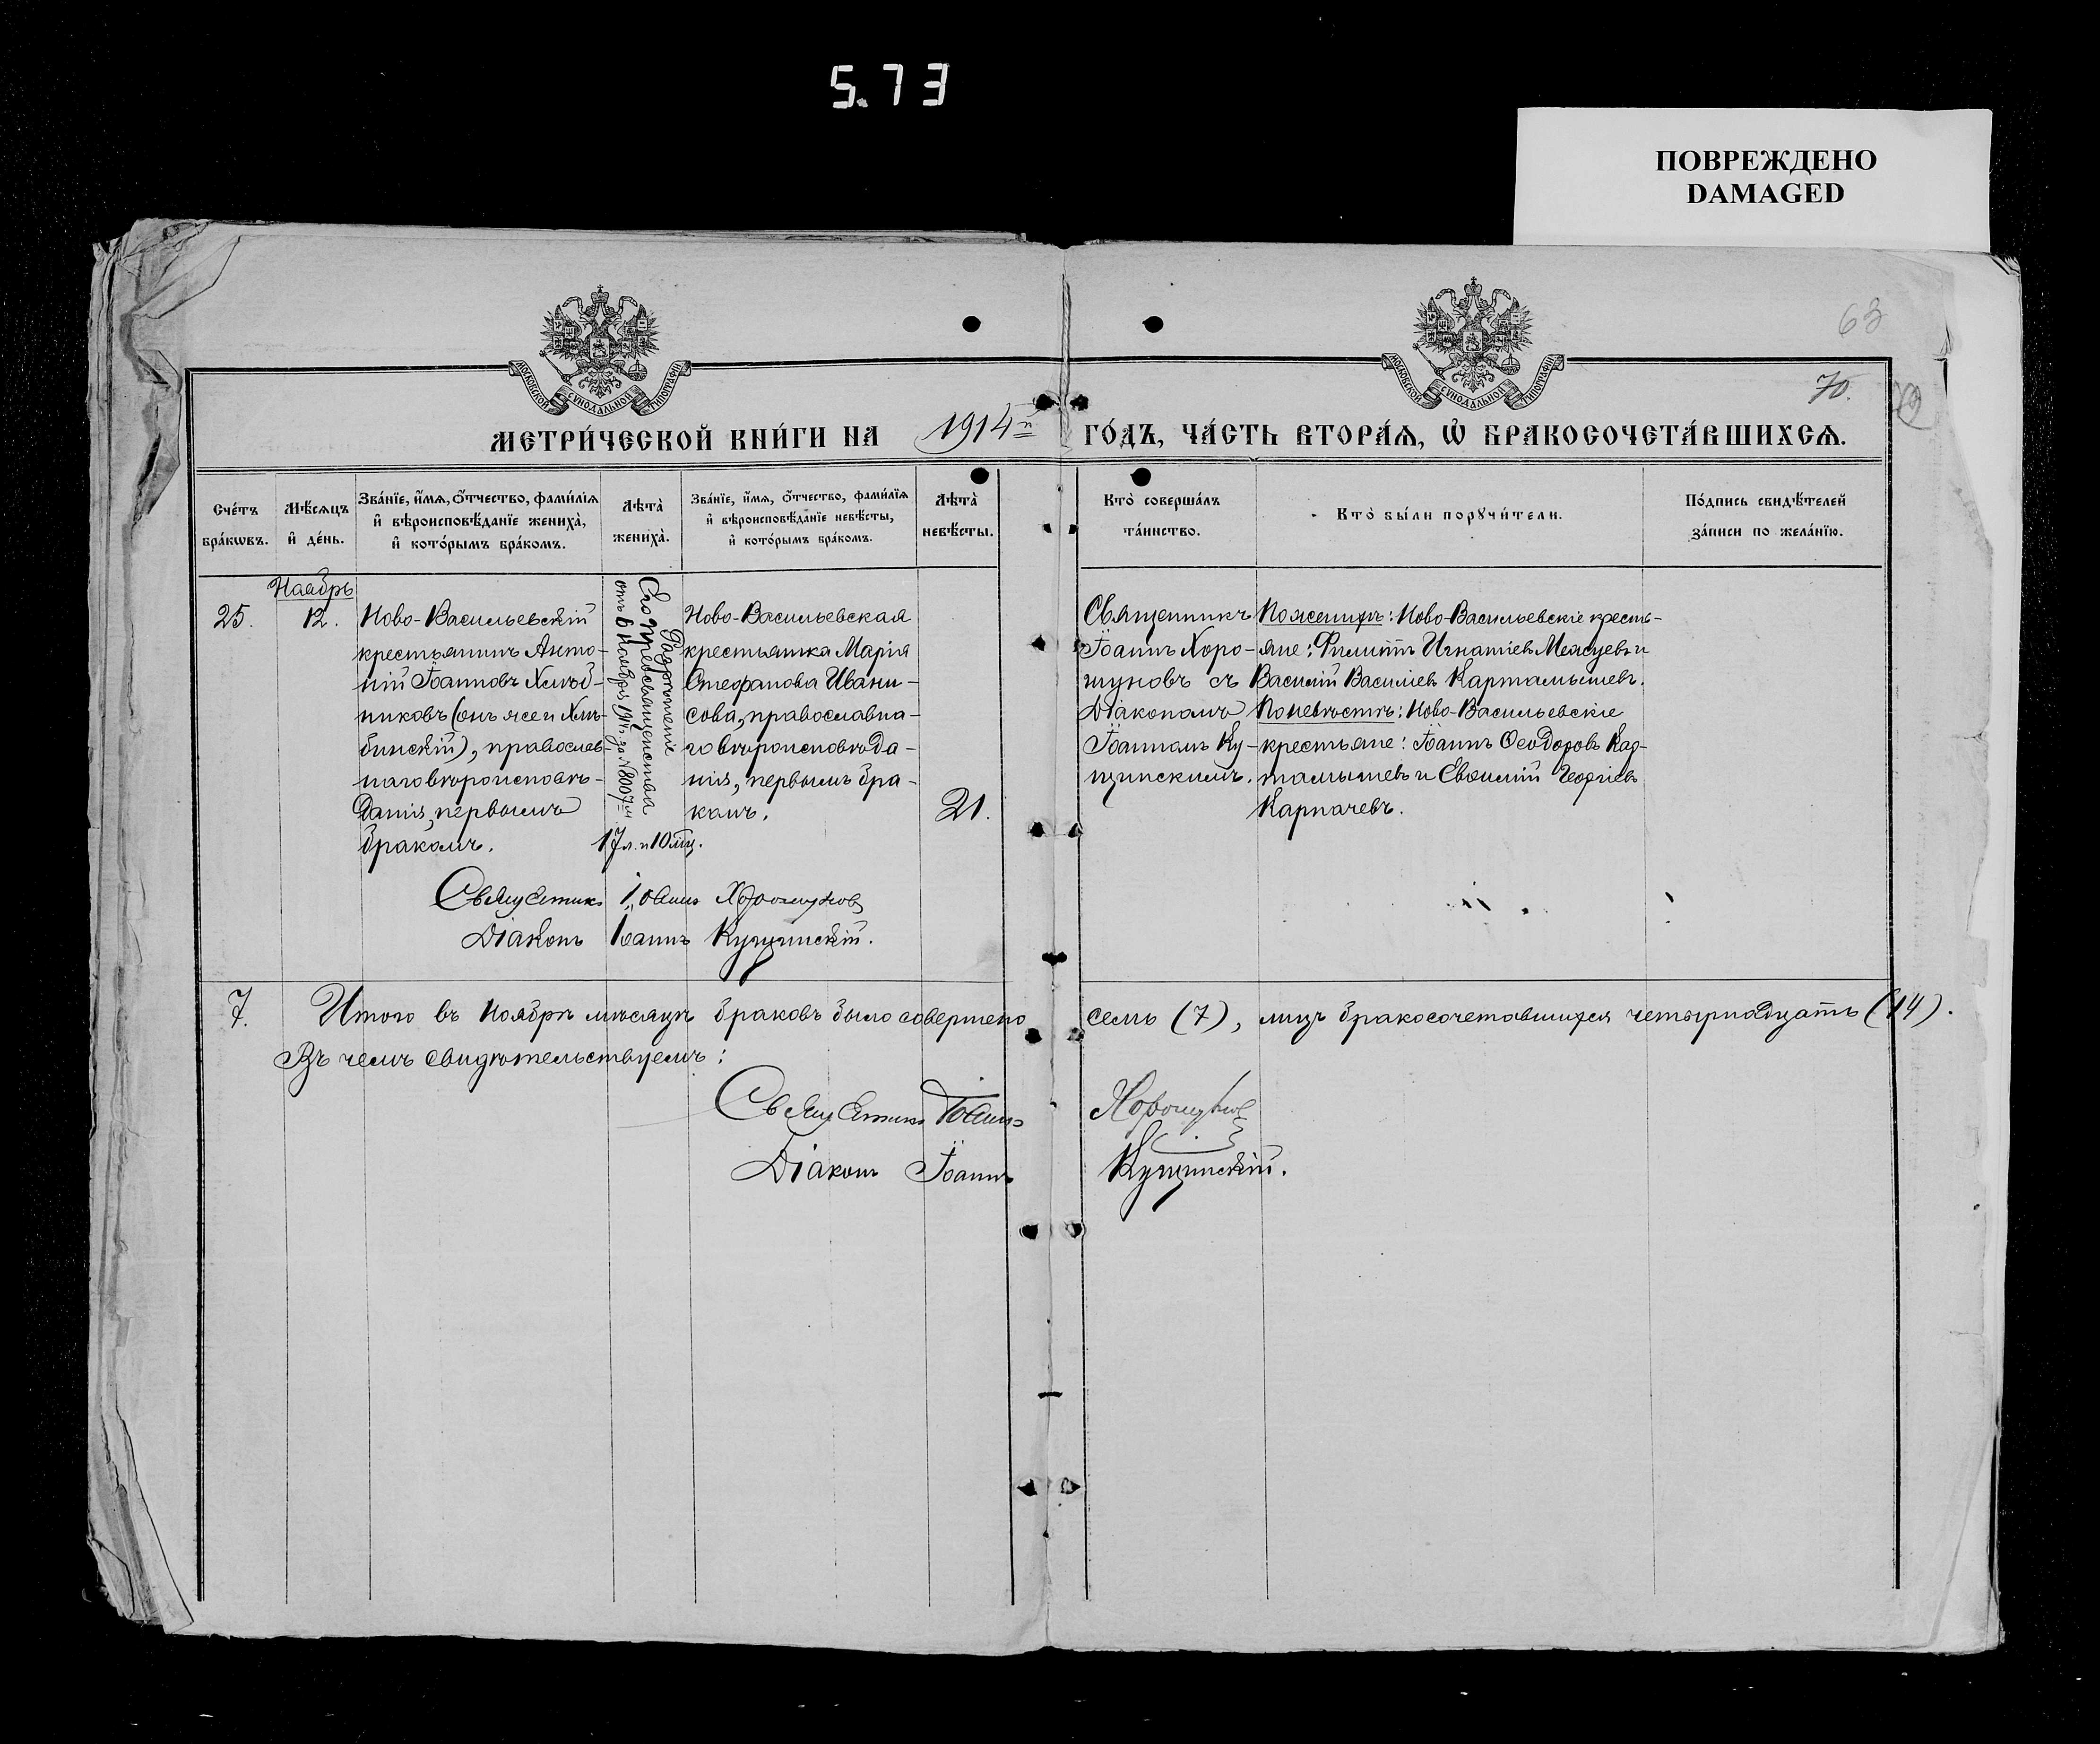 5.73
ПОВРЕЖДЕНО
DAMAGED
63
70.
МОСКОВСКОЙ СУНОДАЛЬНОЙ ТИПОГРАФІИ
МОСКОВСКОЙ СУНОДАЛЬНОЙ ТИПОГРАФІИ
МЕТРИ́ЧЕСКОЙ КНИ́ГИ НА 1914й ГО́ДЪ, ЧА́СТЬ ВТОРА́Ѧ, Ѡ҆ БРАКОСОЧЕТА́ВШИХСѦ.
Сче́тъ
бра́кѡвъ.
Мѣ́сѧцъ
и҆ де́нь.
Зва́нїе, и҆́мѧ, ѻ҆́тчество, фами́лїѧ
и҆ вѣроисповѣ́данїе жениха̀,
и҆ кото́рымъ бра́комъ.
Лѣта̀
жениха̀.
Зва́нїе, и҆́мѧ, ѻ҆́тчество, фами́лїѧ
и҆ вѣроисповѣ́данїе невѣ́сты,
и҆ кото́рымъ бра́комъ.
Лѣта̀
невѣ́сты.
Кто̀ соверша́лъ
та́инство.
Кто̀ бы́ли порꙋчи́тели.
По́дпись свидѣ́телей
за́писи по жела́нїю.
Ноябрь
25.
12.
Ново-Васильевскій
крестьянинъ Анто-
ній Іоанновъ Хлѣб-
никовъ (онъ же и Хлѣ-
бинскій), православ-
наго вѣроисповѣ-
данія, первымъ
бракомъ.
Разрѣшеніе
Его Преосвященства
отъ 6 Ноября 1914 г. за №8007м
17 л. и 10 мц.
Ново-Васильевская
крестьянка Марія
Стефанова Ивани-
сова, православна-
го вѣроисповѣда-
нія, первымъ бра-
комъ.
21.
Священникъ
Іоаннъ Хоро-
шуновъ съ
Діакономъ
Іоанномъ Ку-
щинскимъ.
По женихѣ: Ново-Васильевскіе кресть-
яне: Филиппъ Игнатіевъ Межуевъ и
Василій Василіевъ Картамышевъ.
По невѣстѣ: Ново-Васильевскіе
крестьяне: Іоаннъ Ѳеодоровъ Кар-
тамышевъ и Евѳимій Георгіевъ
Карпачевъ.
Священникъ Іоаннъ Хорошуновъ
Діаконъ Іоаннъ Кущинскій.
7. Итого въ Ноябрѣ мѣсяцѣ браковъ было совершено семь (7), лицъ бракосочетавшихся четырнадцать (14).
Въ чемъ свидѣтельствуемъ:
Священникъ Іоаннъ Хорошуновъ
Діаконъ Іоаннъ Кущинскій.